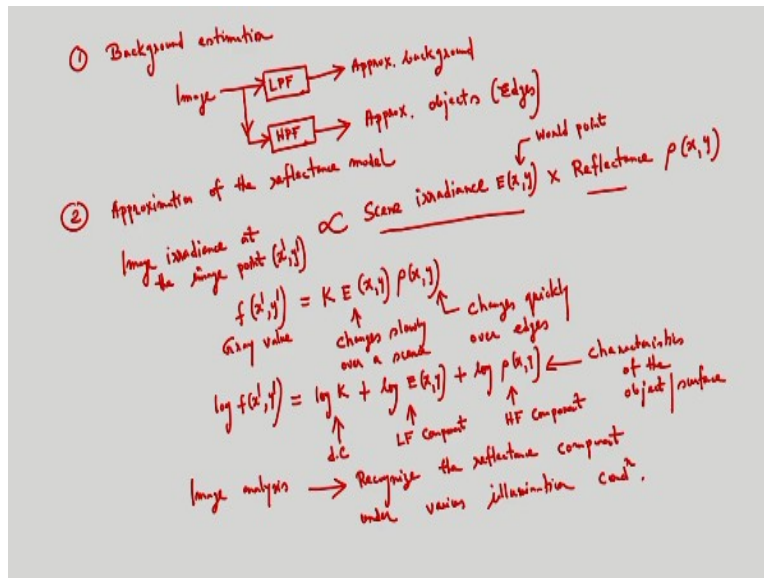 ① Background estimation
Image → LPF → Approx. background
HPF → Approx. objects (Edges)
② Approximation of the reflectance model
world point
Image irradiance at the image point (x',y') ∝ Scene irradiance E(x,y) × Reflectance ρ(x,y)
f(x',y') = K E(x,y) ρ(x,y)
Gray value
changes slowly over a scene
changes quickly over edges
log f(x',y') = log K + log E(x,y) + log ρ(x,y) ← characteristics of the object/surface
d.c
LF component
HF component
Image analysis → Recognize the reflectance component
under various illumination condⁿ.